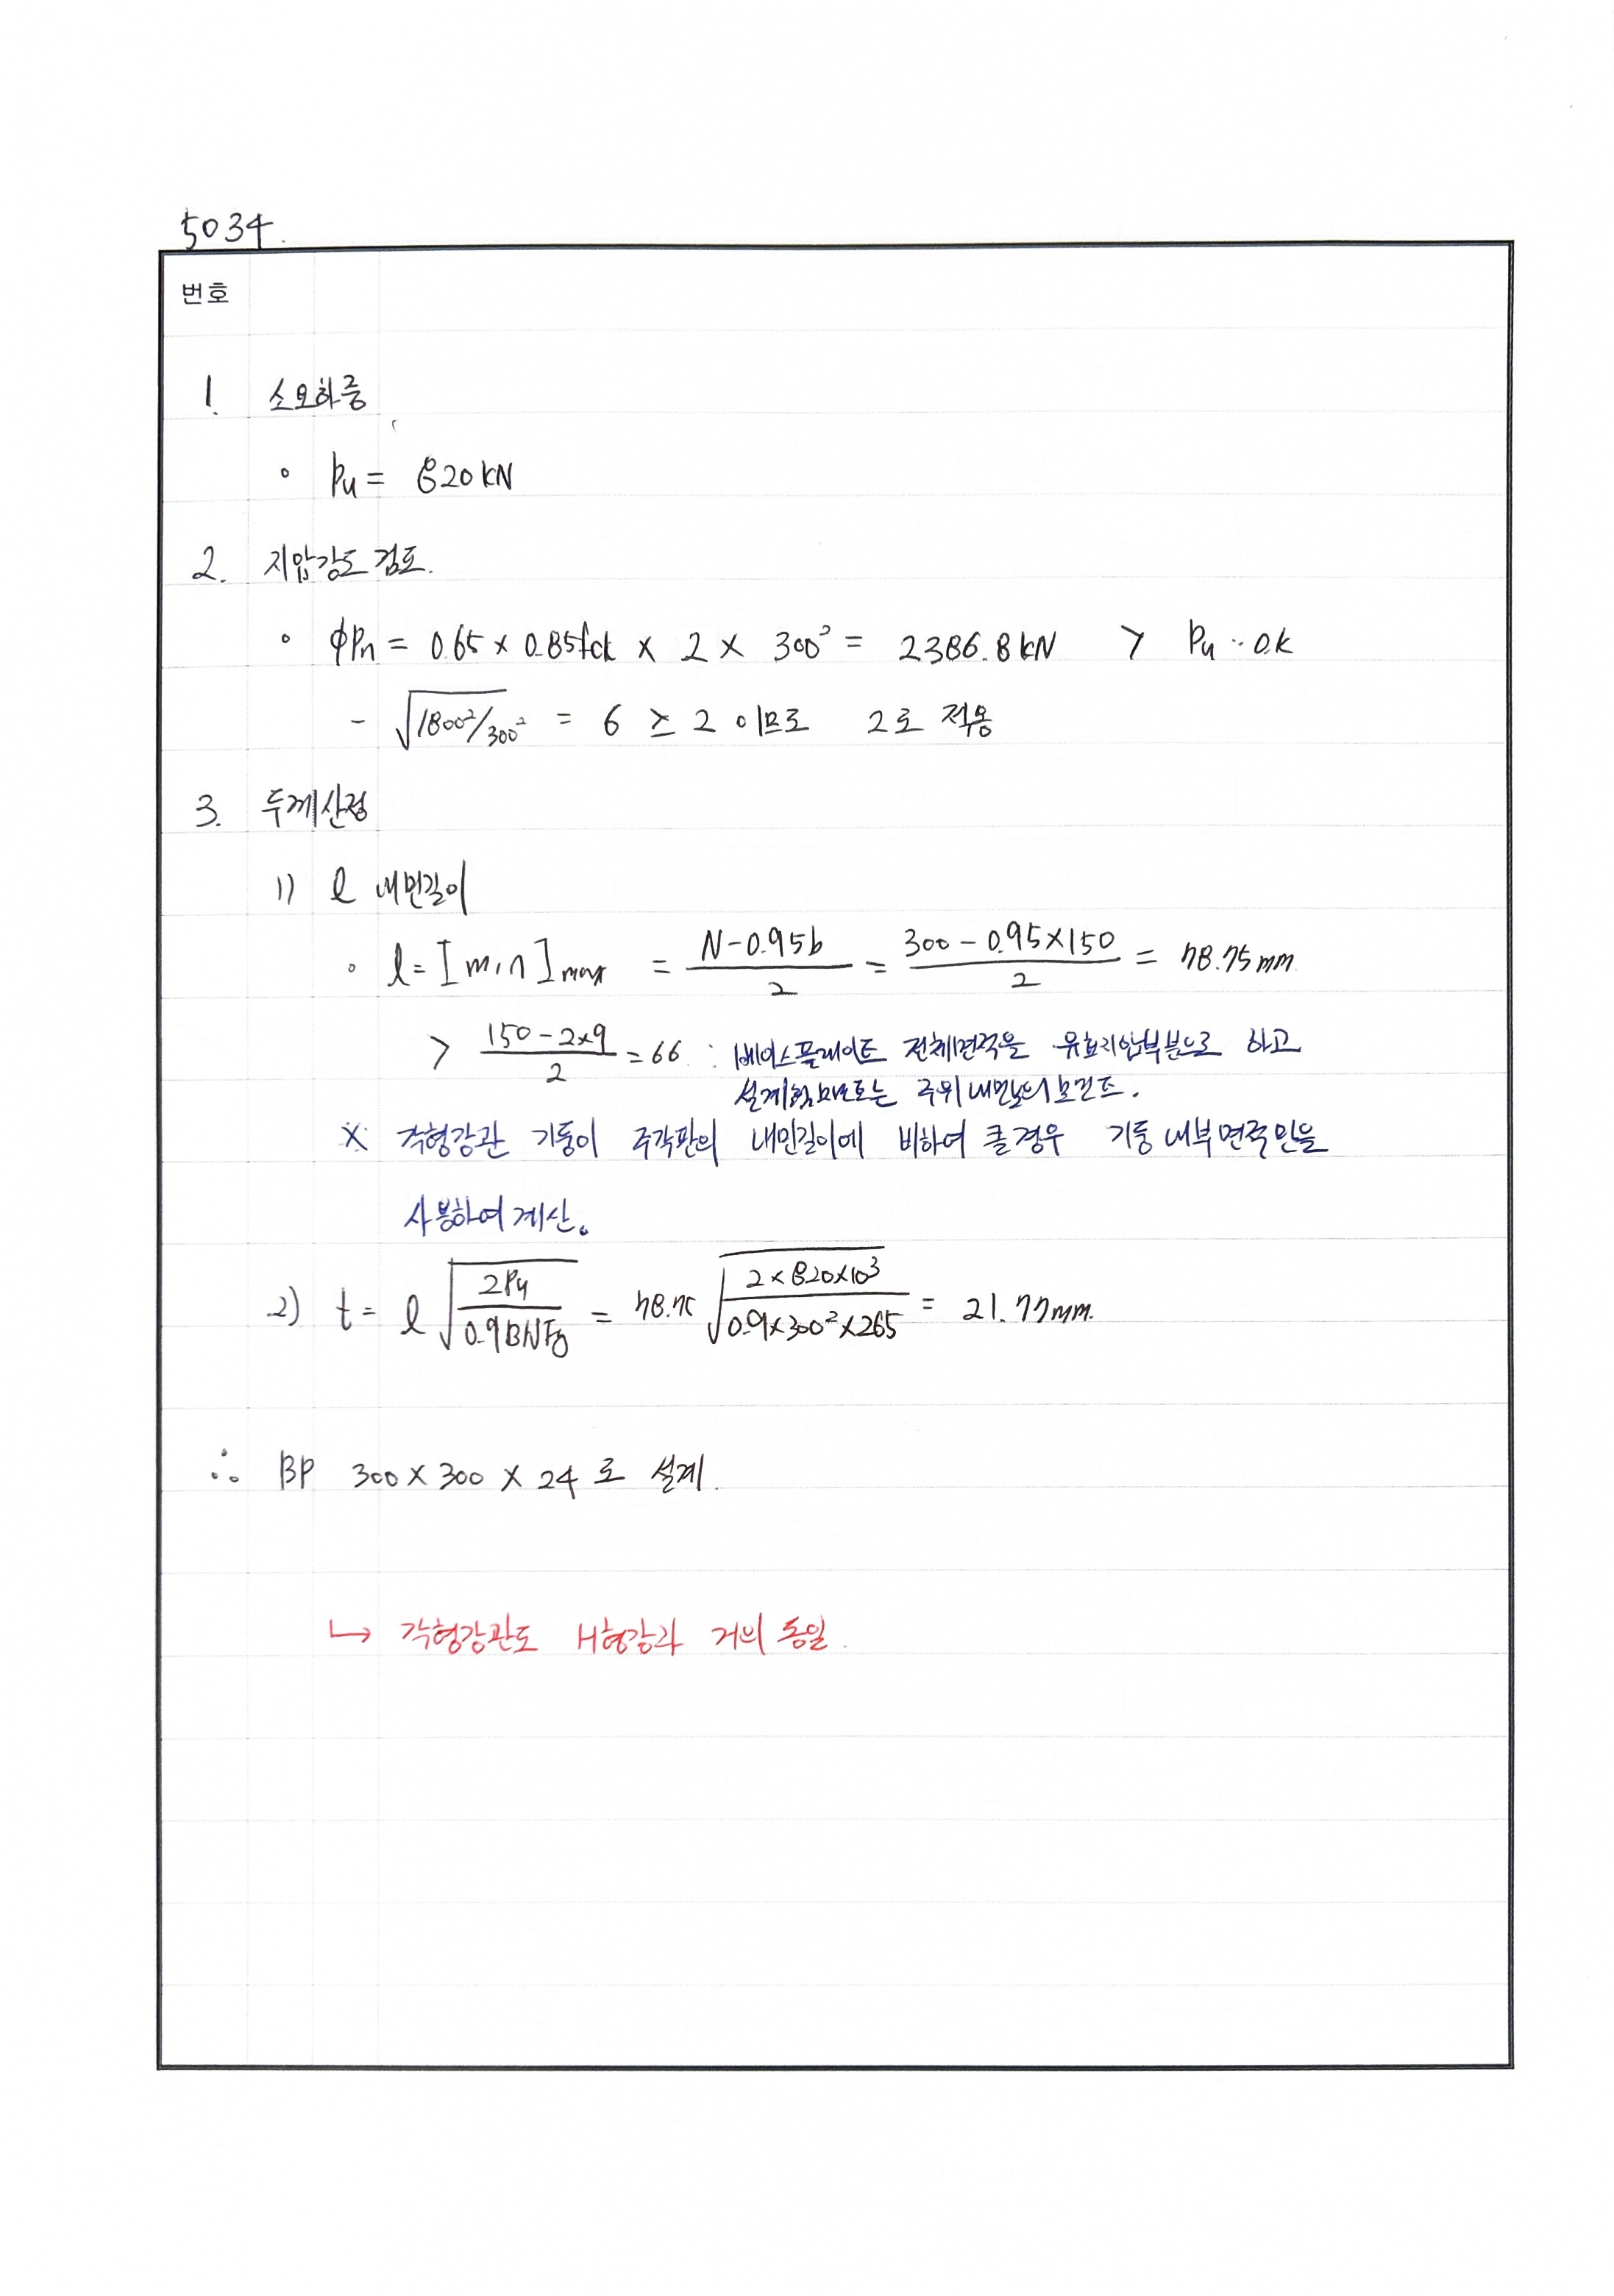 5034.
번호
1. 소요하중
• Pu = 820kN
2. 지압강도 검토.
• φPn = 0.65 × 0.85fck × 2 × 300² = 2386.8kN > Pu ∴ O.K
- √1800²/300² = 6 ≥ 2 이므로 2로 적용
3. 두께산정
1) ℓ 내민길이
• ℓ = [m, n]max = (N-0.95b)/2 = (300-0.95×150)/2 = 78.75mm
> (150-2×9)/2 = 66 : 베이스플레이트 전체면적을 유효지압부분으로 하고
설계휨모멘트는 주위 내민보의 모멘트.
※ 각형강관 기둥이 주각판의 내민길이에 비하여 클경우 기둥 내부면적만을
사용하여 계산.
2) t = ℓ √(2Pu/0.9BNFy) = 78.75 √(2×820×10³/0.9×300²×265) = 21.77mm.
∴ BP 300×300×24로 설계.
↳ 각형강관도 H형강과 거의 동일.